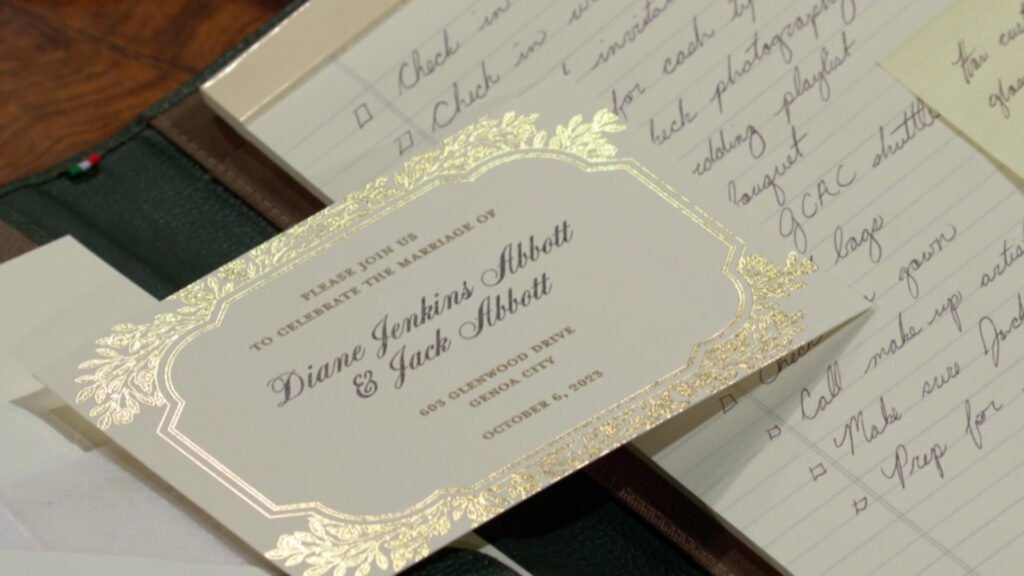 PLEASE JOIN US
TO CELEBRATE THE MARRIAGE OF
Diane Jenkins Abbott
& Jack Abbott
603 GLENWOOD DRIVE
GENOA CITY
OCTOBER 6, 2023
Check in
Check in
for cash
photography
playlist
bouquet
GCAC shuttle
bags
gown
Check
Call make up artist
Make sure Jack
Prep for